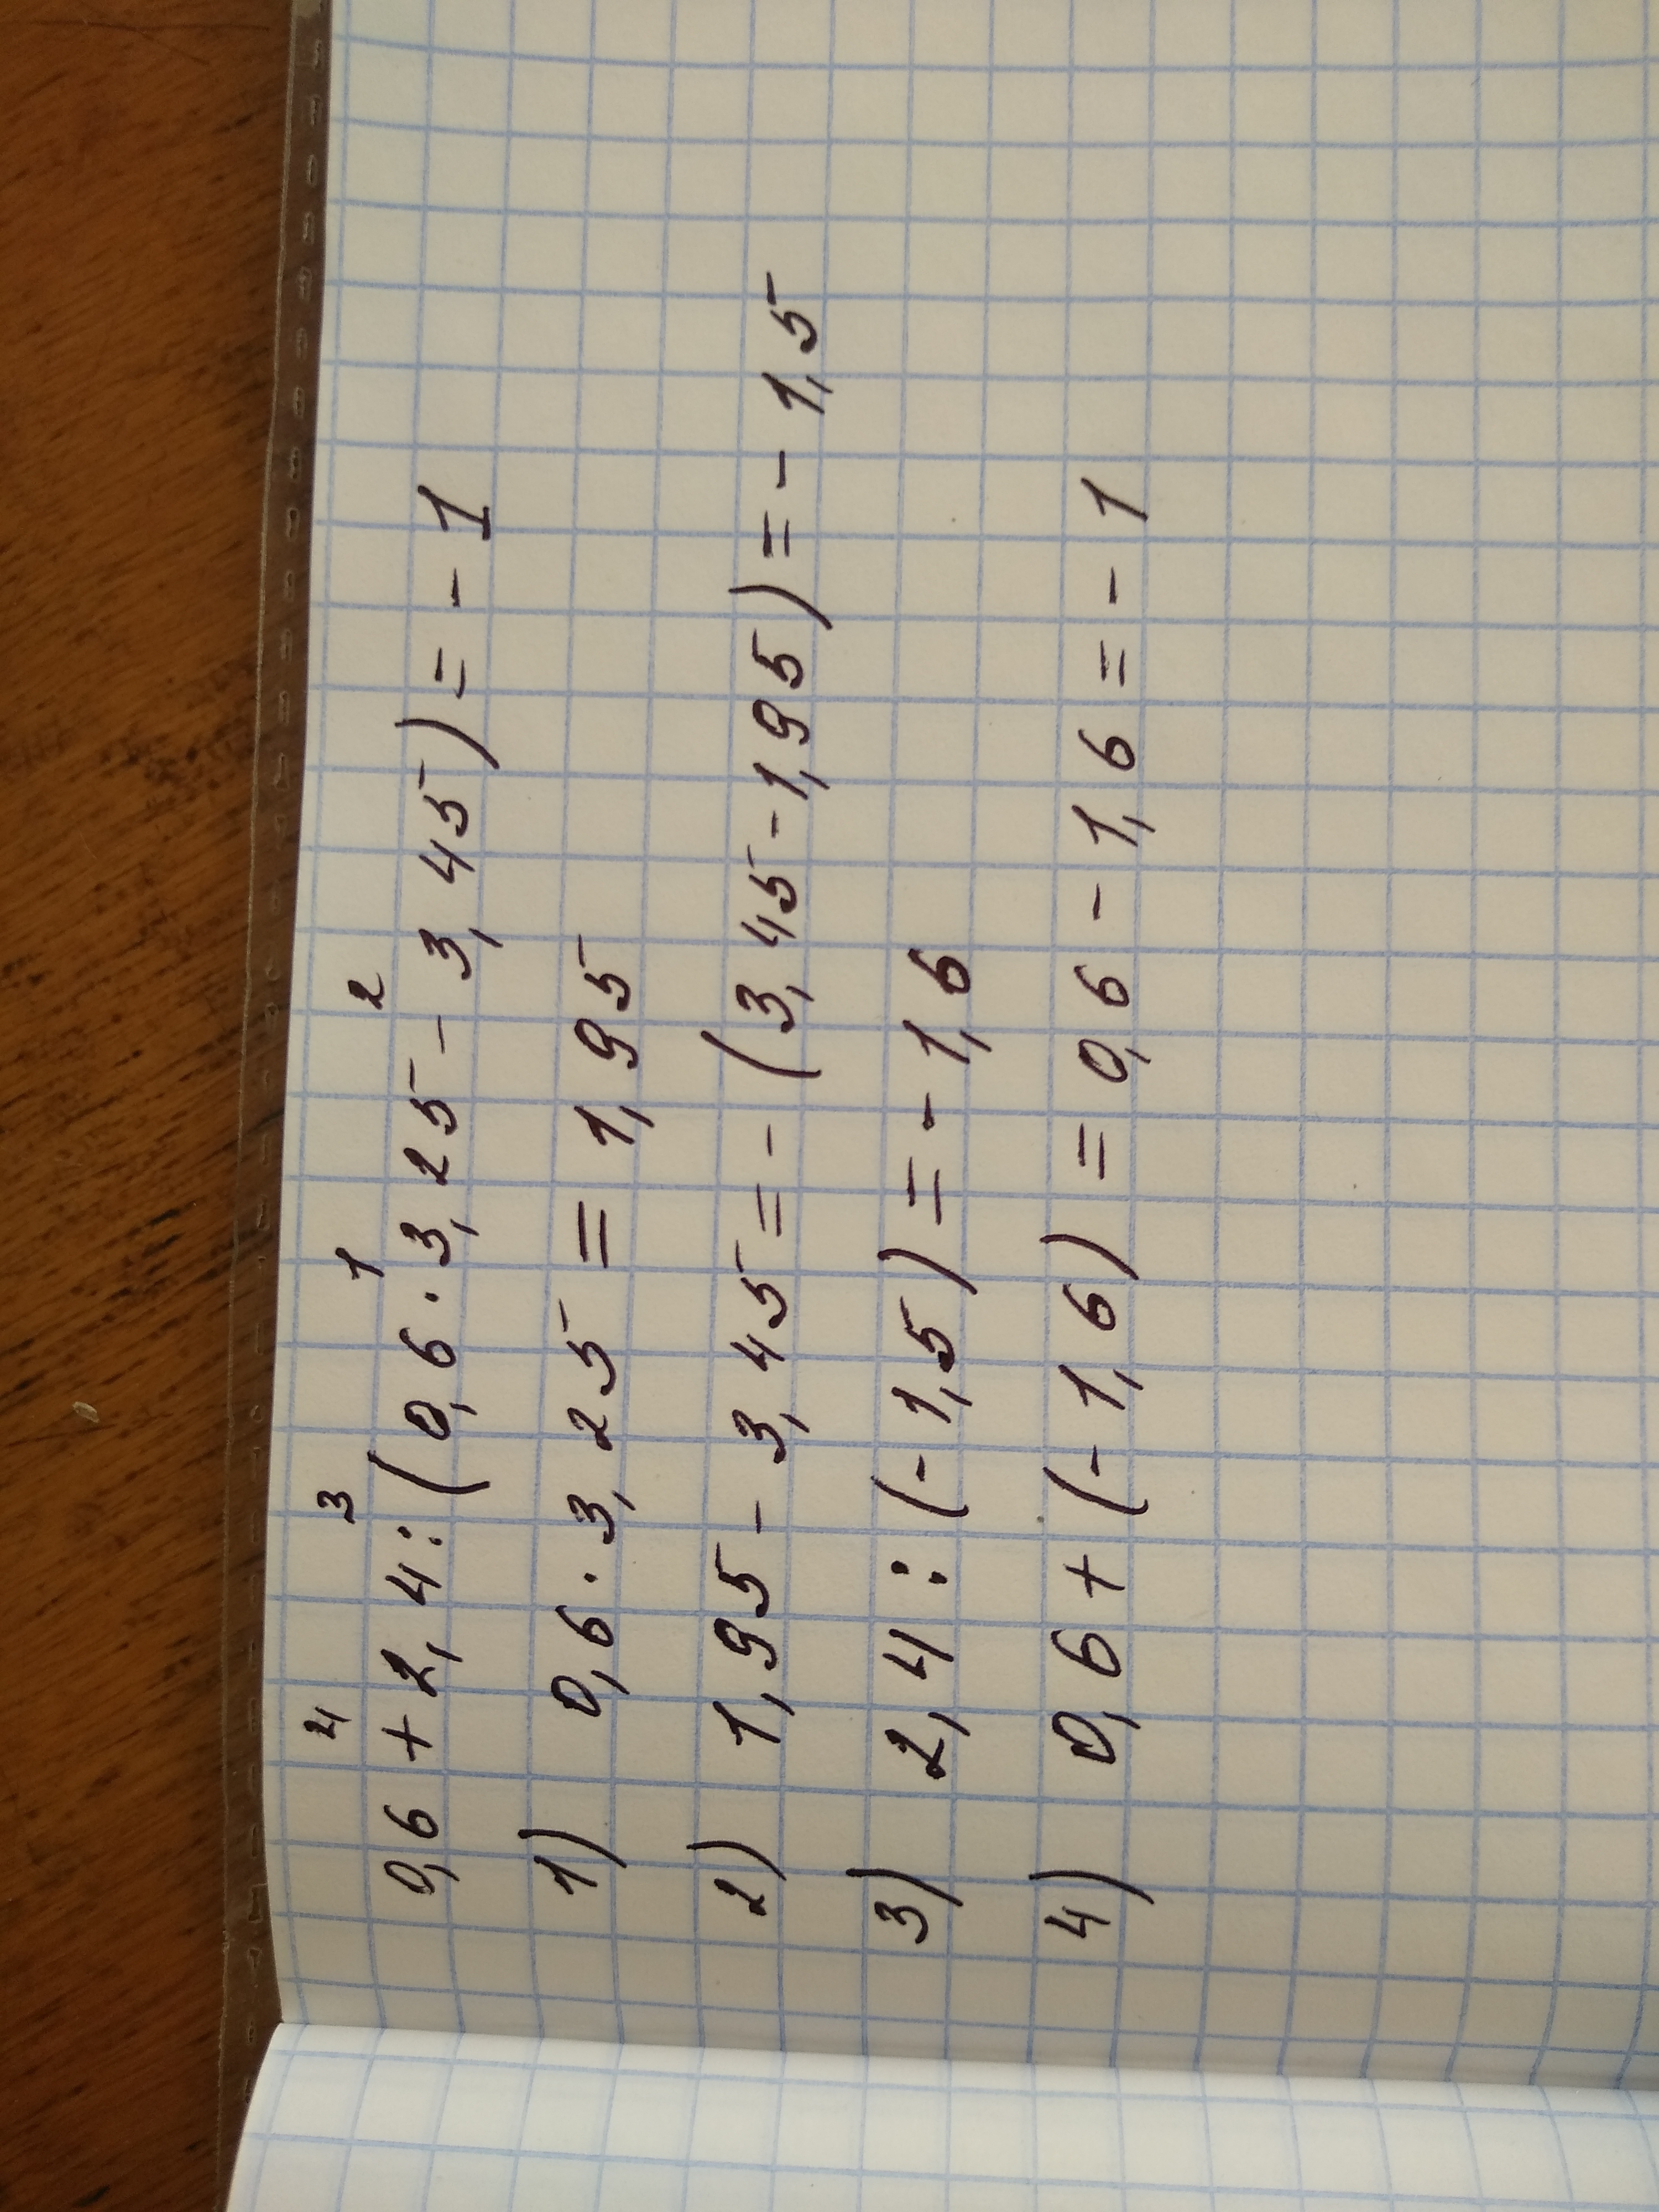 4 3 1 2
0,6 + 2,4 : (0,6 · 3,25 - 3,45) = - 1
1) 0,6 · 3,25 = 1,95
2) 1,95 - 3,45 = - (3,45 - 1,95) = - 1,5
3) 2,4 : (- 1,5) = - 1,6
4) 0,6 + (- 1,6) = 0,6 - 1,6 = - 1